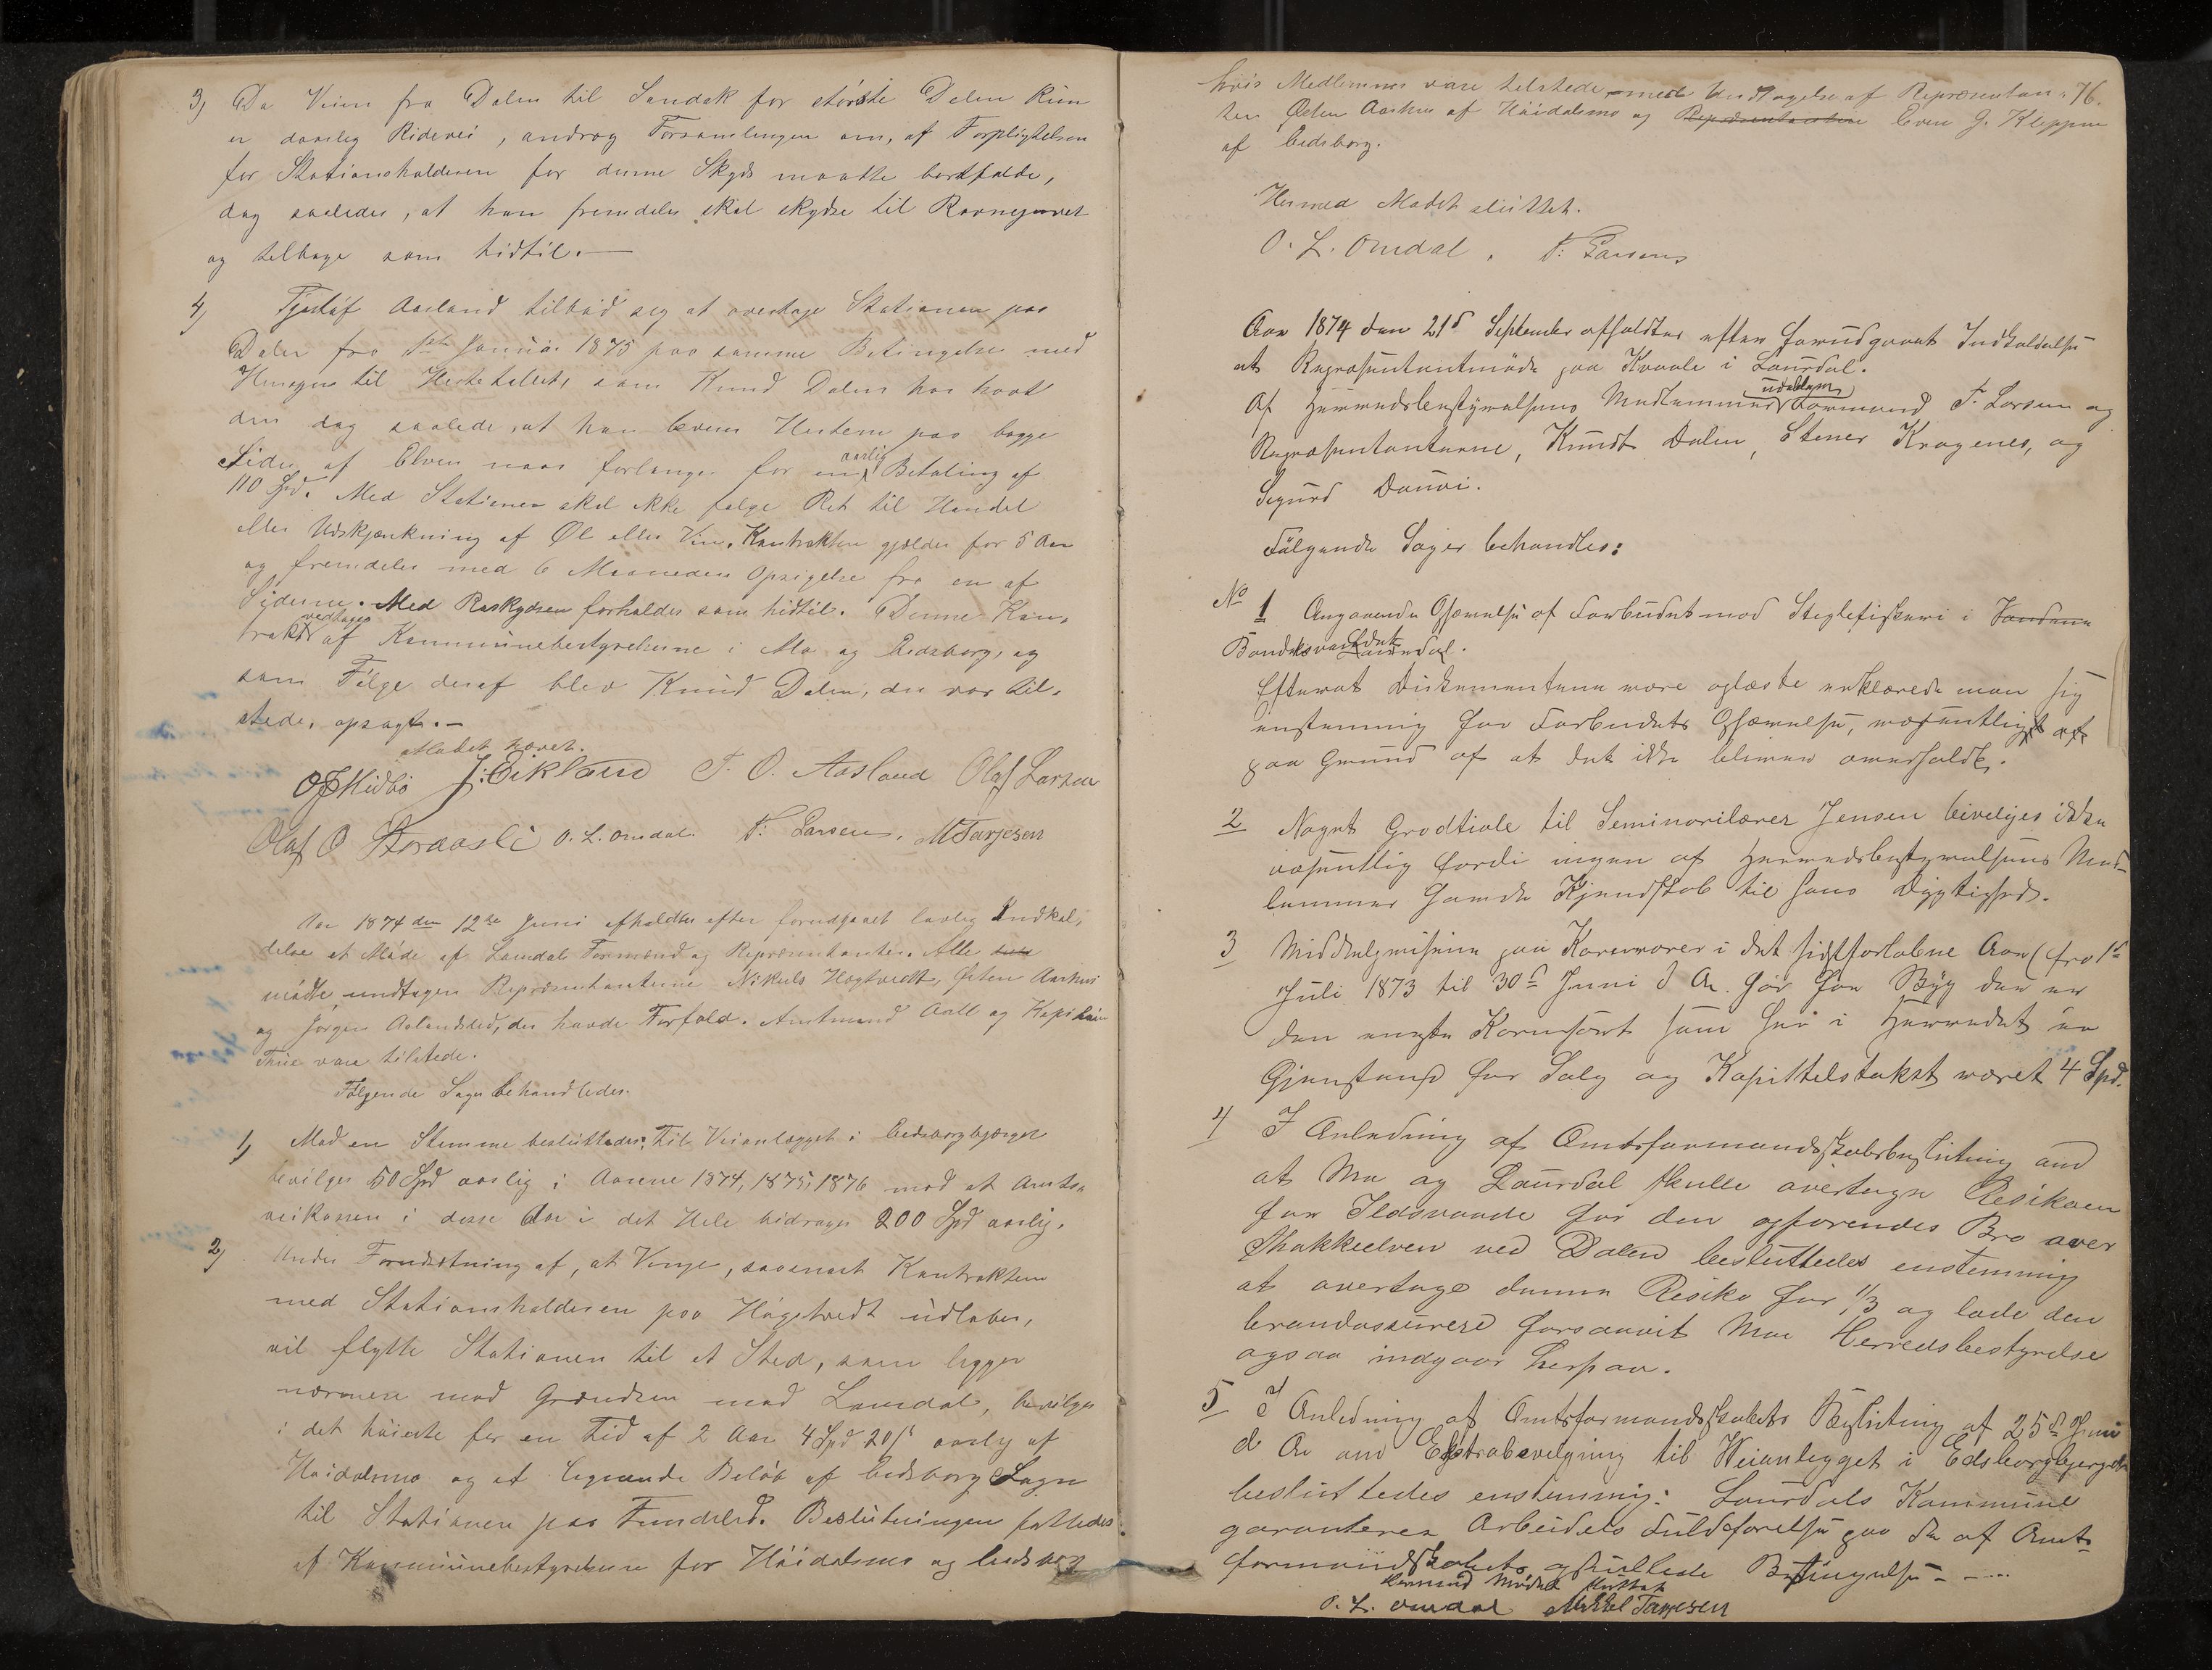 3) Da Veien fra Dalen til Sandok for største Delen kun
er daarlig Ridevei, androg Forsamlingen om, at Forpligtelsen
for Stationsholderen for denne Skyds maatte bortfalde,
dog saaledes, at han fremdeles skal skydse til Ravnejuvet
og tilbage som hidtil.—
4) Tjostaf Aasland tilbød sig at overtage Stationen paa
Dalen fra 1ste Januar 1875 paa samme Betingelse med
Hensyn til Hestetallet, som Knud Dalen har havt
den dog saalede, at han leverer Hestene paa begge
Sider af Elven naar forlanges for en aarlig Betaling af
110 Spd. Med Stationen skal ikke følge Ret til Handel
eller Udskjænkning af Øl eller Vin. Kontrakten gjælder for 5 Aar
og fremdeles med 6 Maaneders Opsigelse fra en af
Siderne. Med Raskydsen forholdes som hidtil. Denne Kon-
trakt vedtages af Kommunebestyrelserne i Mo og Eidsborg, og
som Følge deraf blev Knud Dalen, der var til-
stede, opsagt.—
Mødet hævet.
O J Midbö J. Eikland T. O. Aasland Olaf Larsen
Olaf O Storaasli O. L. Omdal. T: Larsen. M Tarjesen
Aar 1874 den 12te Juni afholdtes efter forudgaaet lovlig Indkal-
delse et Møde af Laurdals Formænd og Repræsentanter. Alle
mødte undtagen Repræsentanterne Nikuls Høgtvedt, Østen Aarhus
og Jørgen Aslandsded, der havde Forfald. Amtmand Aall og Kaptain
Thue vare tilstede.
Følgende Sager behandledes.
1) Mod en Stemme besluttedes: Til Veianlægget i Eidsborgbjerget
bevilges 50 Spd aarlig i Aarene 1874, 1875, 1876 mod at Amts-
veikassen i disse Aar i det Hele bidrager 200 Spd aarlig.
2) Under Forudsætning af, at Vinje, saasnart Kontrakten
med Stationsholderen paa Høgetvedt udløber,
vil flytte Stationen til et Sted, som ligger
nærmere mod Grændsen mod Laurdal, bevilges
i det høieste for en Tid af 2 Aar 4 Spd 20 ß aarlig af
Høidalsmo og et lignende Beløb af Eidsborg Sogn
til Stationen paa Fundelid. Beslutningen fattedes
af Kommunebestyrelsen for Høidalsmo og Eidsborg
hvis Medlemmer vare tilstede med Undtagelse af Repræsentan- 76.
ten Østen Aarhus af Høidalsmo og Repræsentanten Even G. Kleppen
af Eidsborg.
Hermed Mødet sluttet.
O. L. Omdal. T: Larsens
Aar 1874 den 21d September afholdtes efter forudgaaet Indkaldelse
et Repræsentantmöde paa Kvaale i Laurdal.
Af Herredsbestyrelsens Medlemmer udeblem Formand T. Larsen og
Repræsentanterne, Knudt Dalen, Stener Kragenes, og
Sigurd
Fölgende Sager behandles:
No 1 Angaaende Ophævelse af Forbudet mod Steglefiskeri i Vandene
Bandaksvandet Laurdal.
Efterat Dokumenterne vare oplæste erklærede man sig
enstemmig for Forbudets Ophævelse, væsentligst
paa Grund af at det ikke bliver overholdt.
2 Noget Grodtiale til Seminarilærer Jensen bevilges ikke
væsentlig fordi ingen af Herredsbestyrelsens Med-
lemmer havde Kjendskab til hans Dygtighed.
3 Middelprisen paa Kornvarer i det sidstforløbne Aar (fra 1d
Juli 1873 til 30d Juni d. A. har for Byg der er
den eneste Kornsort som her i Herredet er
Gjenstand for Salg og Kapittelstakst været 4 Spd.
4 I Anledning af Amtsformandskabsbeslutning om
at Mo og Laurdal skulle overtage Resikoen
for Ildsvaade for den opførendes Bro over
Thokkeelven ved Dalen besluttedes enstemmig
at overtage denne Resiko for 1/3 og lade den
brandassurere forsaavit Moe Herredsbestyrelse
ogsaa indgaar herpaa.
5 I Anledning af Amtsformandskabets Beslutning af 25d Juni
d Ar om Ekstrabevilgning til Weianlegget i Edsborgbjerget
besluttedes enstemmig: Laurdals Kommune
garanterer Arbeidets Fuldførelse paa de af Amts-
formandskabets opstillede Betingelser - —
Hermed Mødet sluttet
O. L. Omdal Mikkel Tarjesen